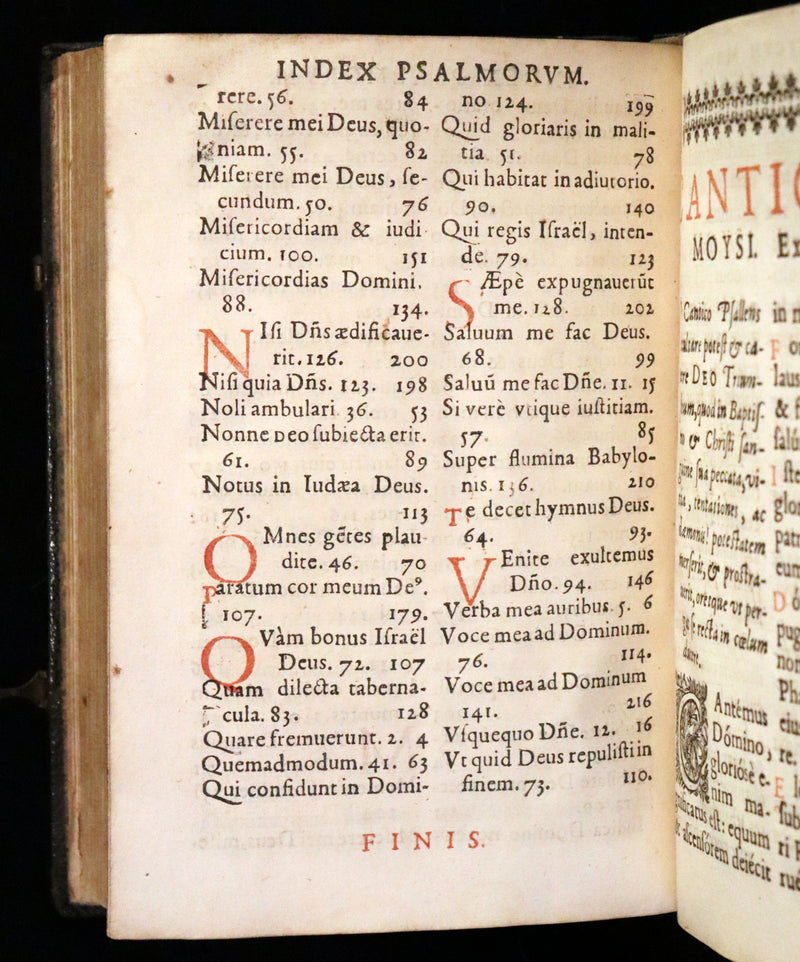 INDEX PSALMORVM.
rere. 56. 84
Miſerere mei Deus, quo-
niam. 55. 82
Miſerere mei Deus, ſe-
cundum. 50. 76
Miſericordiam & iudi
cium. 100. 151
Miſericordias Domini.
88. 134.
NIſi Dñs ædificaue-
rit. 126. 200
Niſi quia Dñs. 123. 198
Noli ambulari. 36. 53
Nonne Deo ſubiecta erit.
61. 89
Notus in Iudæa Deus.
75. 113
OMnes gẽtes plau
dite. 46. 70
Paratum cor meum Deꝰ.
107. 179.
QVàm bonus Iſraël
Deus. 72. 107
Quam dilecta taberna-
cula. 83. 128
Quare fremuerunt. 2. 4
Quemadmodum. 41. 63
Qui confidunt in Domi-
no 124. 199
Quid gloriaris in mali-
tia 51. 78
Qui habitat in adiutorio.
90. 140
Qui regis Iſraël, inten-
de. 79. 123
SÆpè expugnauerũt
me. 128. 202
Saluum me fac Deus.
68. 99
Saluũ me fac Dñe. 11. 15
Si verè vtique iuſtitiam.
57. 85
Super flumina Babylo-
nis. 136. 210
Te decet hymnus Deus.
64. 93.
VEnite exultemus
Dño. 94. 146
Verba mea auribus. 5. 6
Voce mea ad Dominum.
76. 114.
Voce mea ad Dominum
141. 216
Vſquequo Dñe. 12. 16
Vt quid Deus repuliſti in
finem. 73. 110.
FINIS.
CANTIC
MOYSI. Ex
Cantico Pſallens
& ca-
re DEO Tram-
quod in Baptiſ.
& Chriſti ſan-
ſua peccata, vi-
tentationes, ac
poteſtatem
& proſtra-
oreque vt per-
recta in cœlum
CAntémus
Dómino,
glorióſè e-
nim ma-
eſt: equum
aſcenſórem deiécit